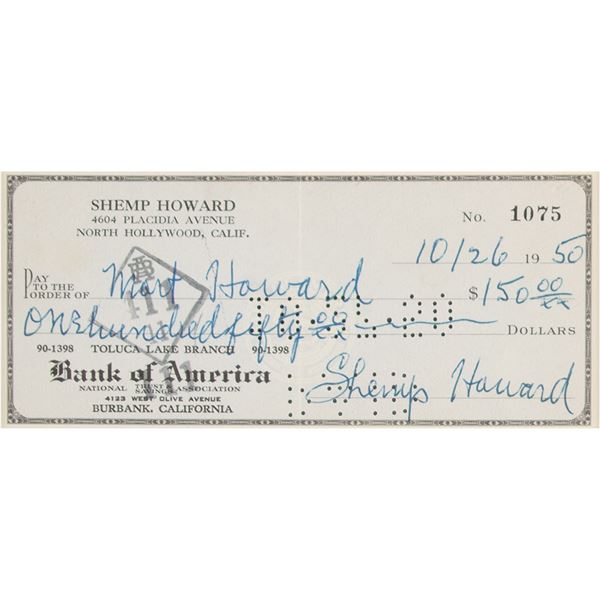 SHEMP HOWARD
4604 PLACIDIA AVENUE
NORTH HOLLYWOOD, CALIF.
No. 1075
10/26 1950
PAY TO THE ORDER OF Mort Howard $150 00/xx
One hundred fifty 00/xx DOLLARS
90-1398 TOLUCA LAKE BRANCH 90-1398
Bank of America
NATIONAL TRUST & SAVINGS ASSOCIATION
4123 WEST OLIVE AVENUE
BURBANK, CALIFORNIA
Shemp Howard